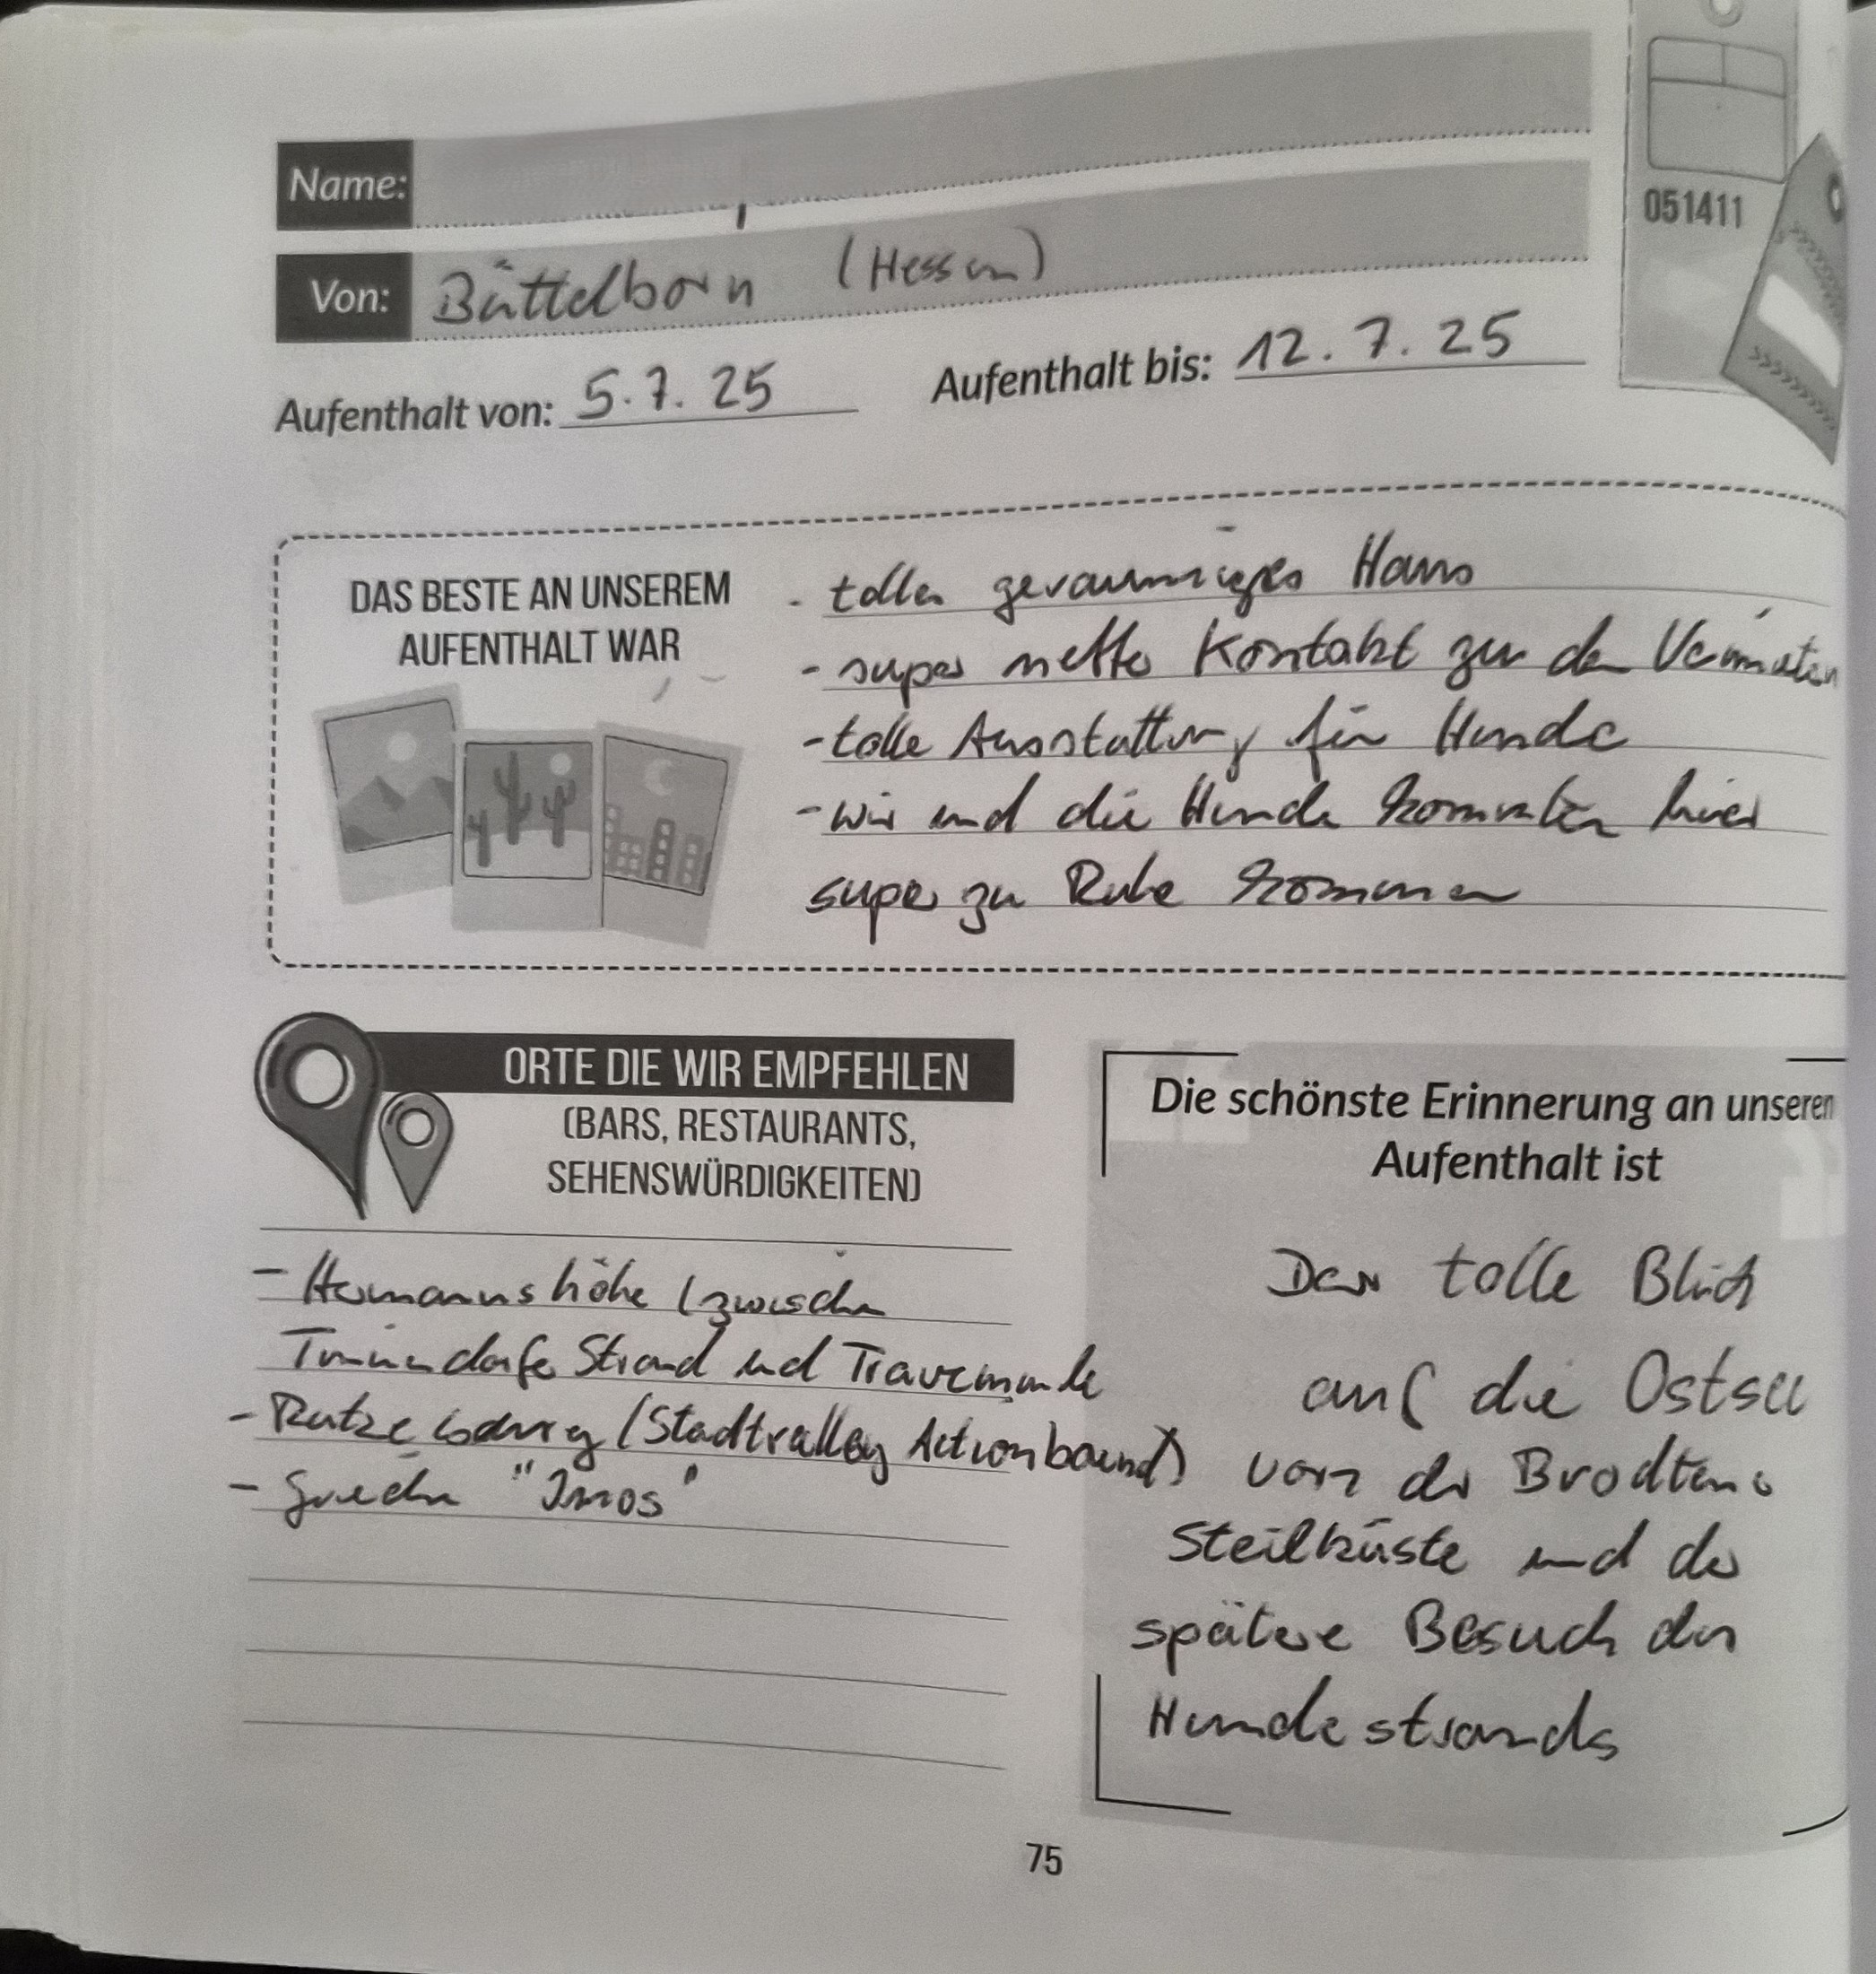 051411
Name:
Von: Büttelborn (Hessen)
Aufenthalt von: 5.7.25 Aufenthalt bis: 12.7.25
DAS BESTE AN UNSEREM
AUFENTHALT WAR
- tolles geräumiges Haus
- super netter Kontakt zu den Vermietern
- tolle Ausstattung für Hunde
- wir und die Hunde konnten hier
super zu Ruhe kommen
ORTE DIE WIR EMPFEHLEN
(BARS, RESTAURANTS,
SEHENSWÜRDIGKEITEN)
- Hermannshöhe (zwischen
Timmendorfer Strand und Travemünde
- Ratzeburg (Stadtralley Actionbound)
- Grieche "Imos"
Die schönste Erinnerung an unseren
Aufenthalt ist
Der tolle Blick
auf die Ostsee
von der Brodtener
Steilküste und der
spätere Besuch des
Hundestrands
75